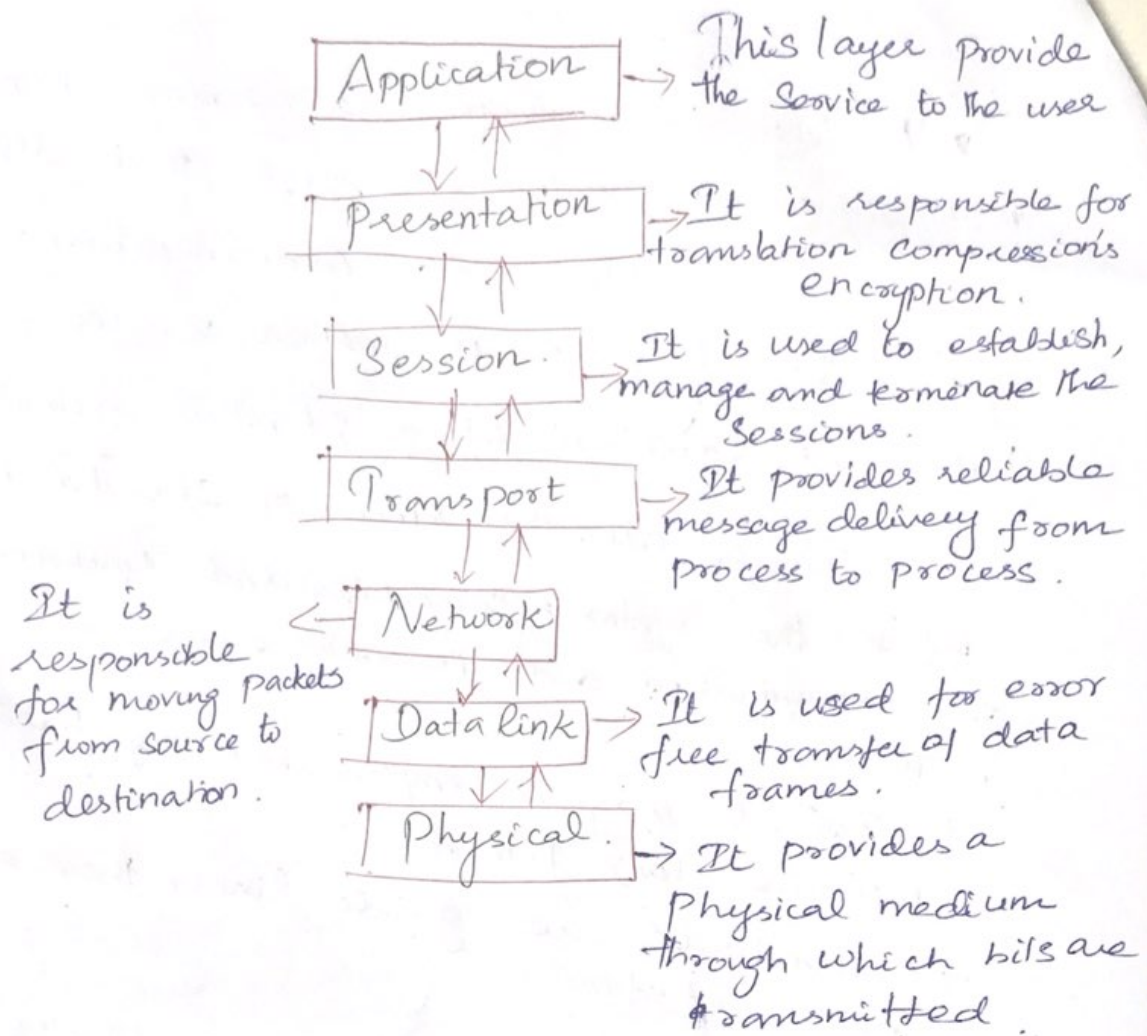 Application
This layer provide
the Service to the user
Presentation
It is responsible for
translation compression's
encryption.
Session.
It is used to establish,
manage and terminate the
Sessions.
Transport
It provides reliable
message delivery from
process to process.
Network
It is
responsible
for moving packets
from source to
destination.
Data link
It is used for error
free transfer of data
frames.
Physical.
It provides a
Physical medium
through which bits are
transmitted.